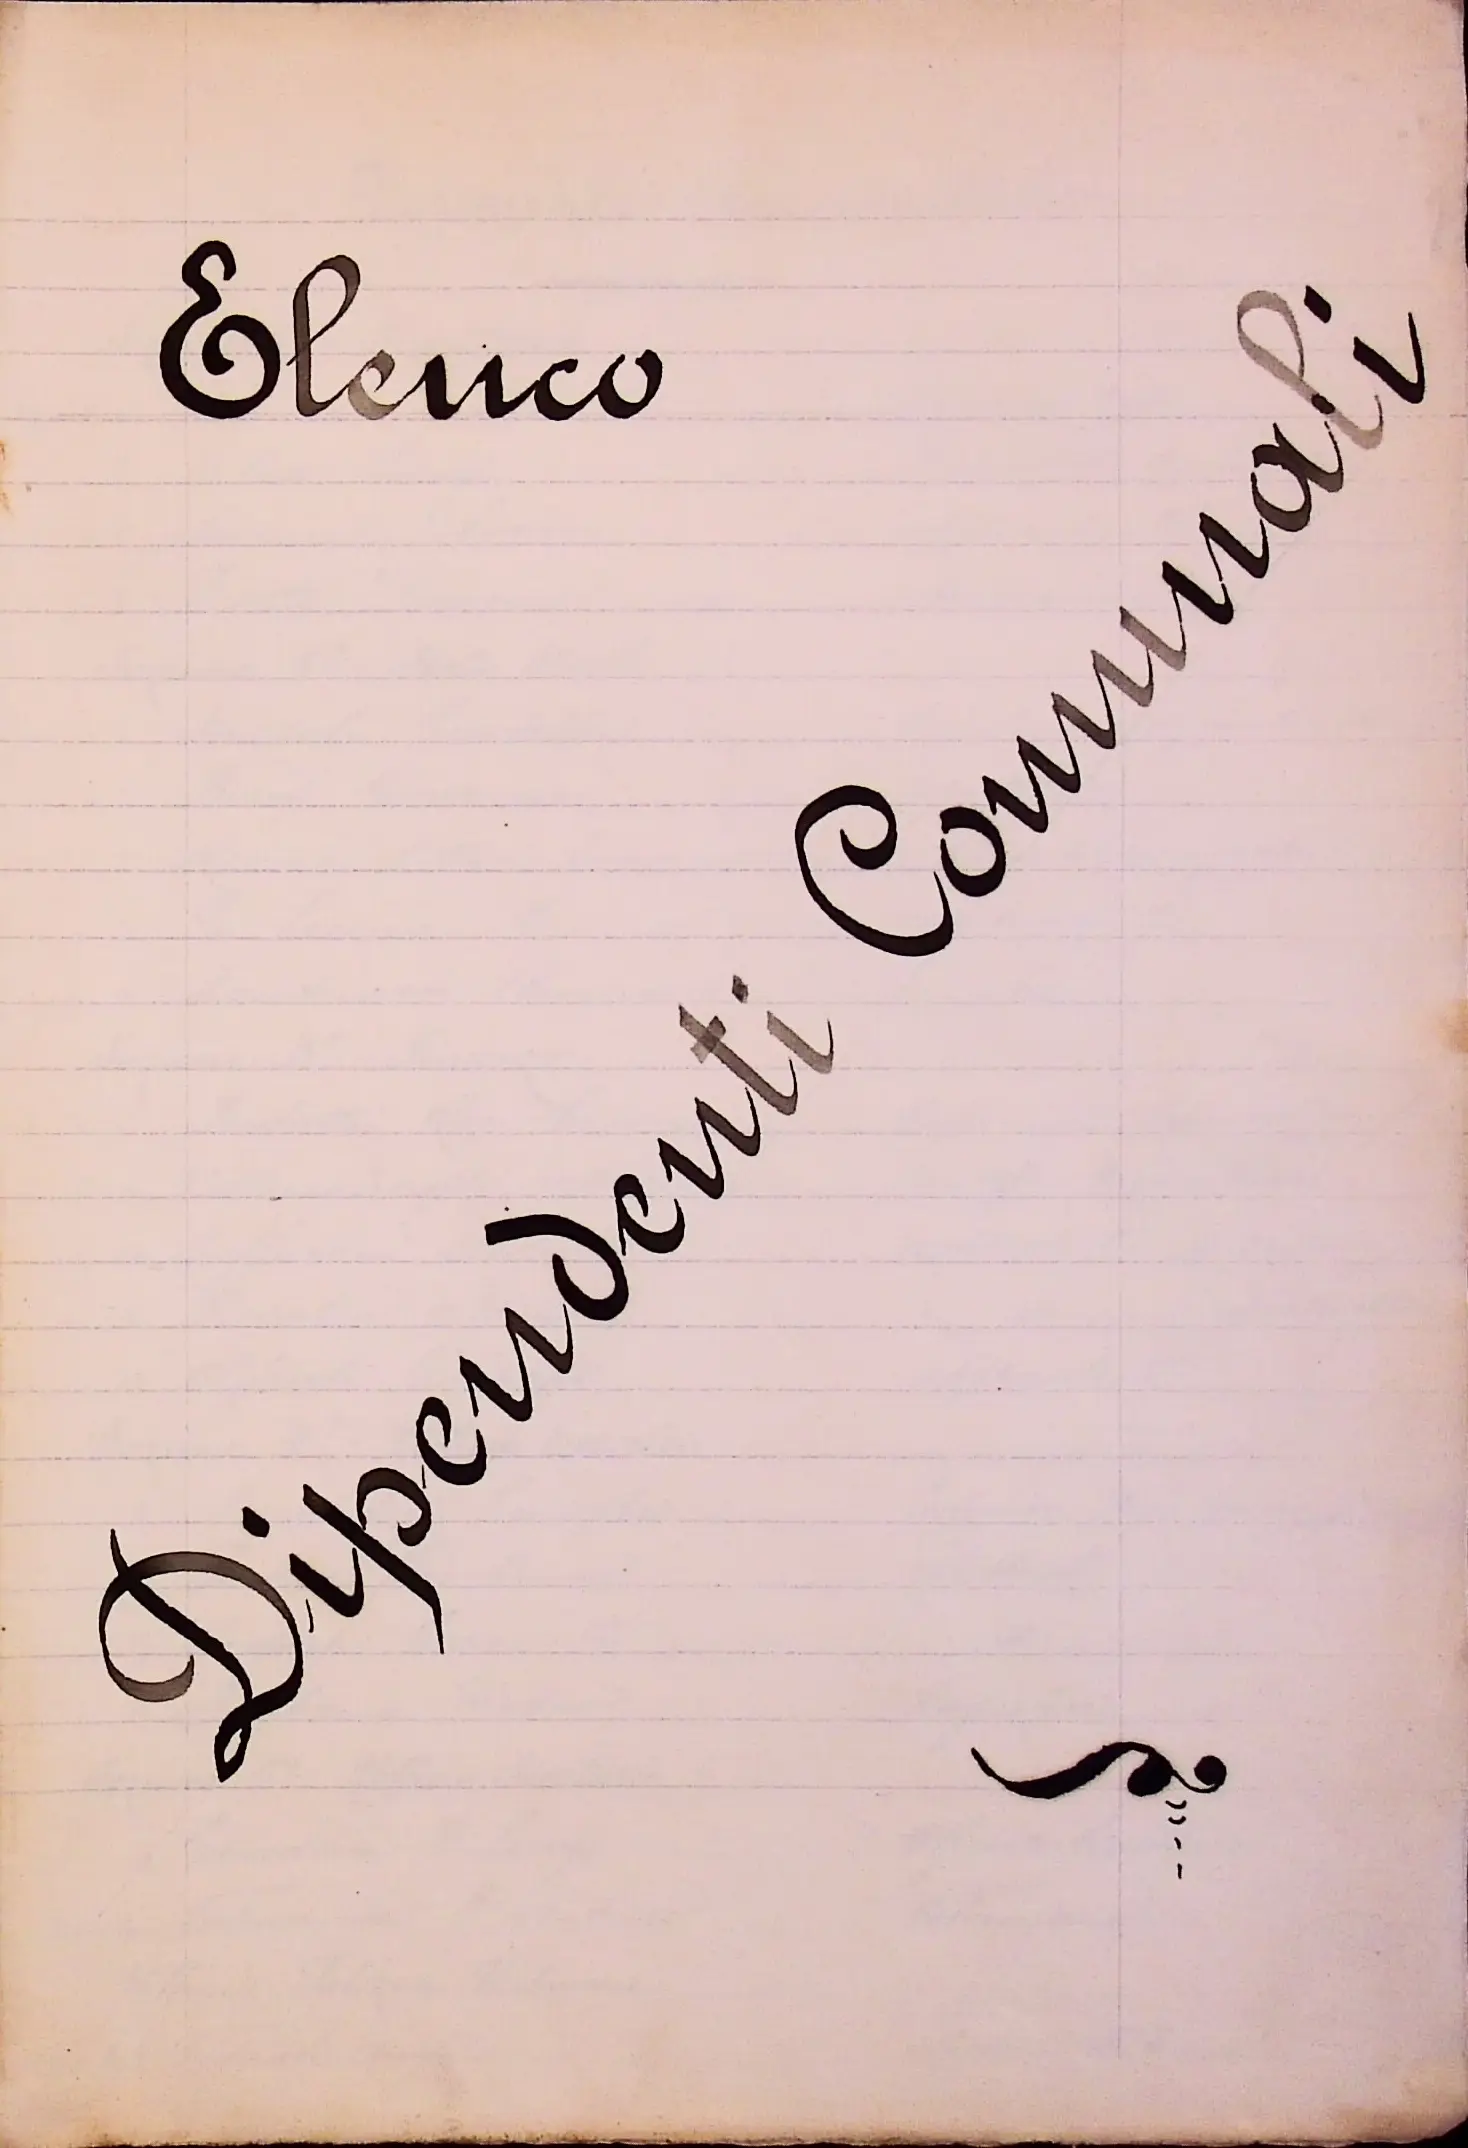 Elenco
Dipendenti Comunali